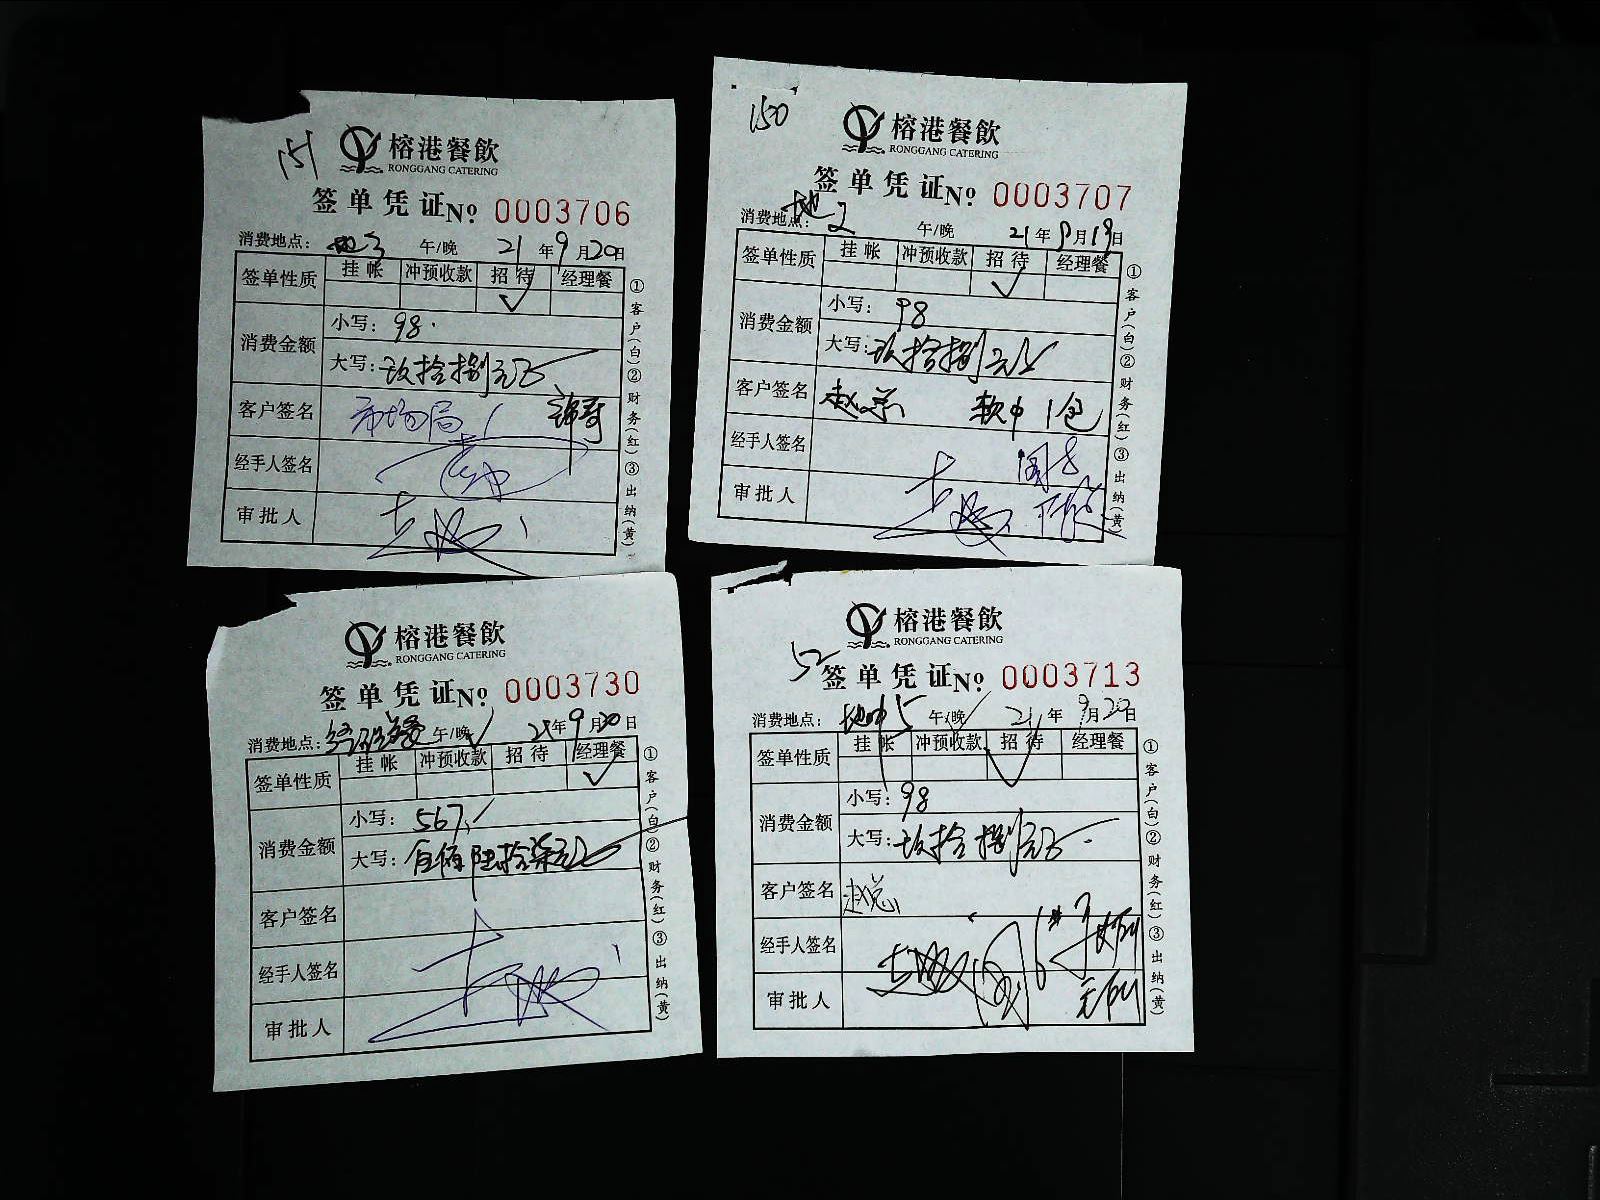 151
榕港餐飲
RONGGANG CATERING
签单凭证 No 0003706
消费地点： 午/晚 21年9月20日
签单性质 挂帐 冲预收款 招待 经理餐
✓
消费金额 小写：98.
大写：玖拾捌元正
客户签名 市场局
经手人签名
审批人
①客户(白)②财务(红)③出纳(黄)
150
榕港餐飲
RONGGANG CATERING
签单凭证 No 0003707
消费地点：地2 午/晚 21年9月19日
签单性质 挂帐 冲预收款 招待 经理餐
✓
消费金额 小写：98
大写：玖拾捌元正
客户签名 赵总 软中1包
经手人签名
审批人
①客户(白)②财务(红)③出纳(黄)
榕港餐飲
RONGGANG CATERING
签单凭证 No 0003730
消费地点： 午/晚✓ 21年9月20日
签单性质 挂帐 冲预收款 招待 经理餐
✓
消费金额 小写：567
大写：伍佰陆拾柒元正
客户签名
经手人签名
审批人
①客户(白)②财务(红)③出纳(黄)
52
榕港餐飲
RONGGANG CATERING
签单凭证 No 0003713
消费地点： 午/晚✓ 21年9月20日
签单性质 挂帐 冲预收款 招待 经理餐
✓
消费金额 小写：98
大写：玖拾捌元正
客户签名 赵总
经手人签名
审批人
①客户(白)②财务(红)③出纳(黄)